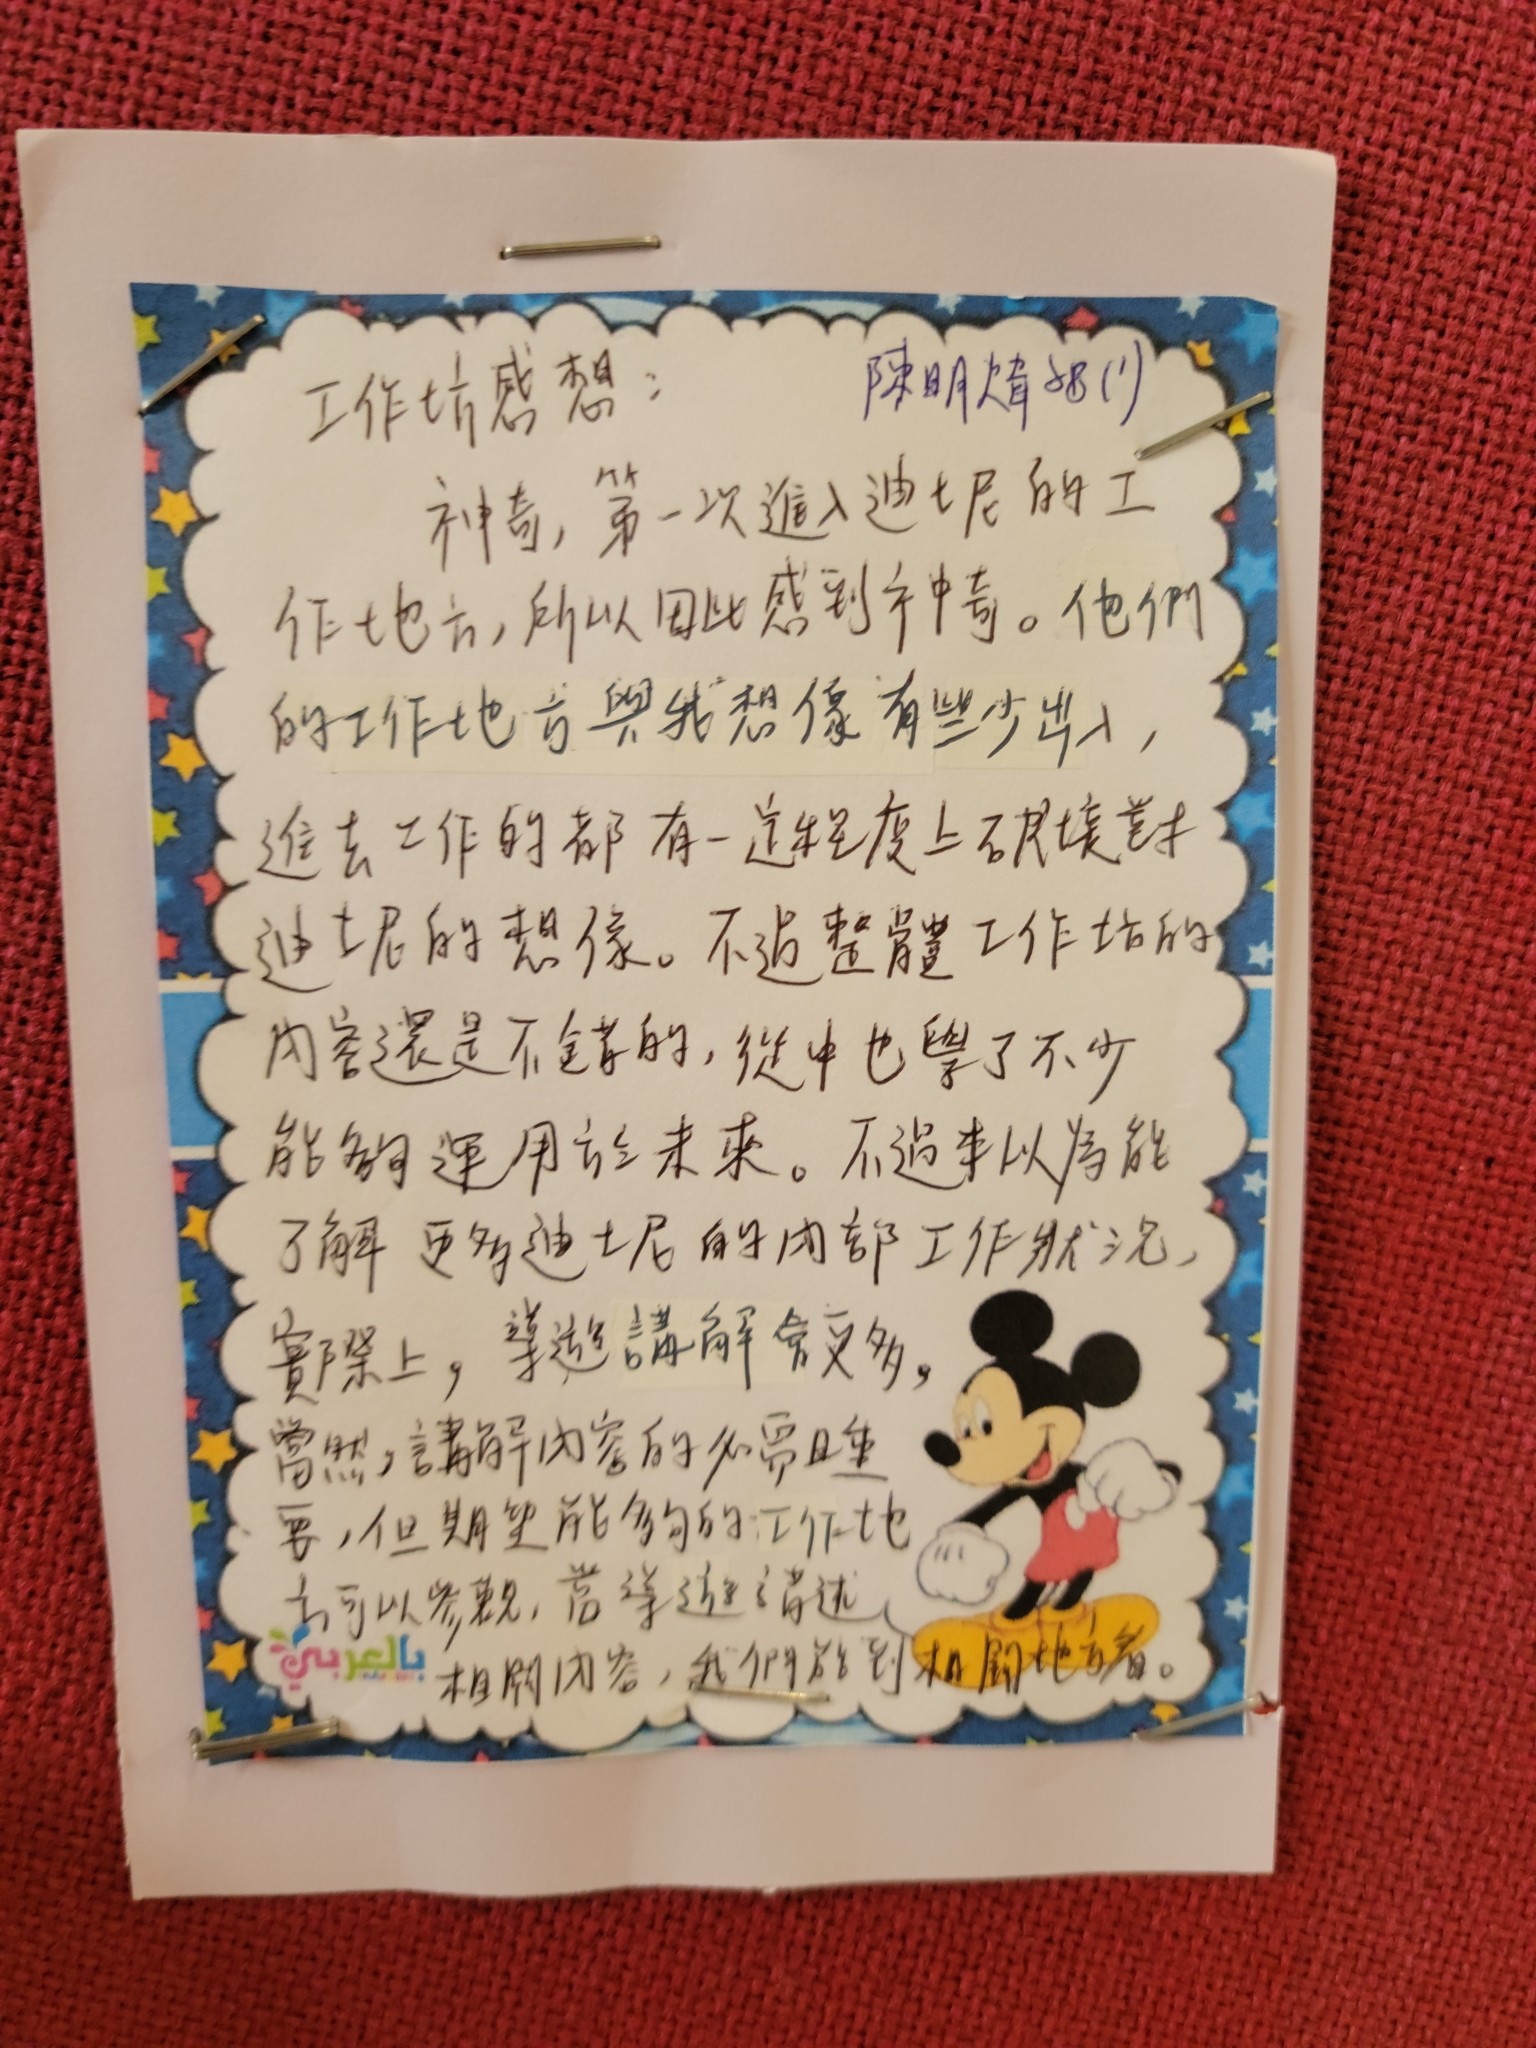 工作坊感想： 陳明煒 5B(1)
神奇，第一次進入迪士尼的工
作地方，所以因此感到神奇。他們
的工作地方與我想像有些少出入，
進去工作的都有一定程度上破壞對
迪士尼的想像。不過整體工作坊的
內容還是不錯的，從中也學了不少
能夠運用於未來。不過本以為能
了解更多迪士尼的內部工作狀況，
實際上，導遊講解會更多。
當然，講解內容的必需且重
要，但期望能夠的工作地
方可以參觀，當導遊講述
相關內容，我們能到相關地方看。
بالعربي